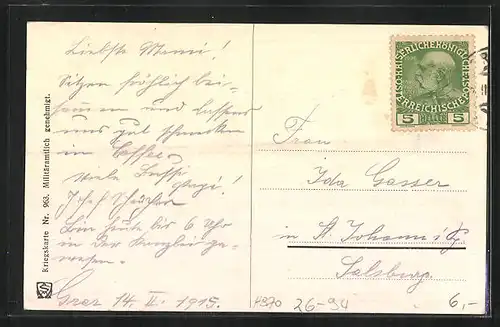 Liebste Mami!
Sitzen fröhlich bei-
sammen und lassens
uns gut schmecken
im Caffee.
Viele Bussi
Josef
Bin heute bis 6 Uhr
in der Kanzlei ge-
wesen.
Graz 14. II. 1915.
Kriegskarte Nr. 963. Militäramtlich genehmigt.
KAISERLICHE KÖNIGLICHE ÖSTERREICHISCHE POST
5 HELLER 5
Frau
Ida Gasser
in St. Johann i/P.
Salzburg.
26-94
6,-